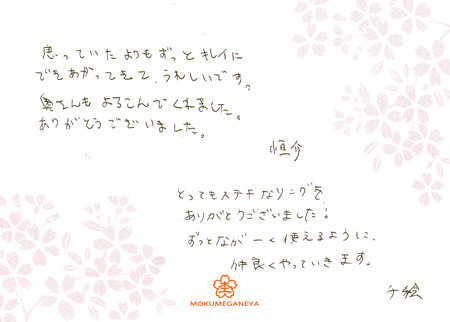 思っていたよりもずっとキレイに
できあがってきて、うれしいです。
奥さんもよろこんでくれました。
ありがとうございました。
恒介
とってもステキなリングを
ありがとうございました!
ずっとなが一く使えるように、
仲良くやっていきます。
千絵
MOKUMEGANEYA